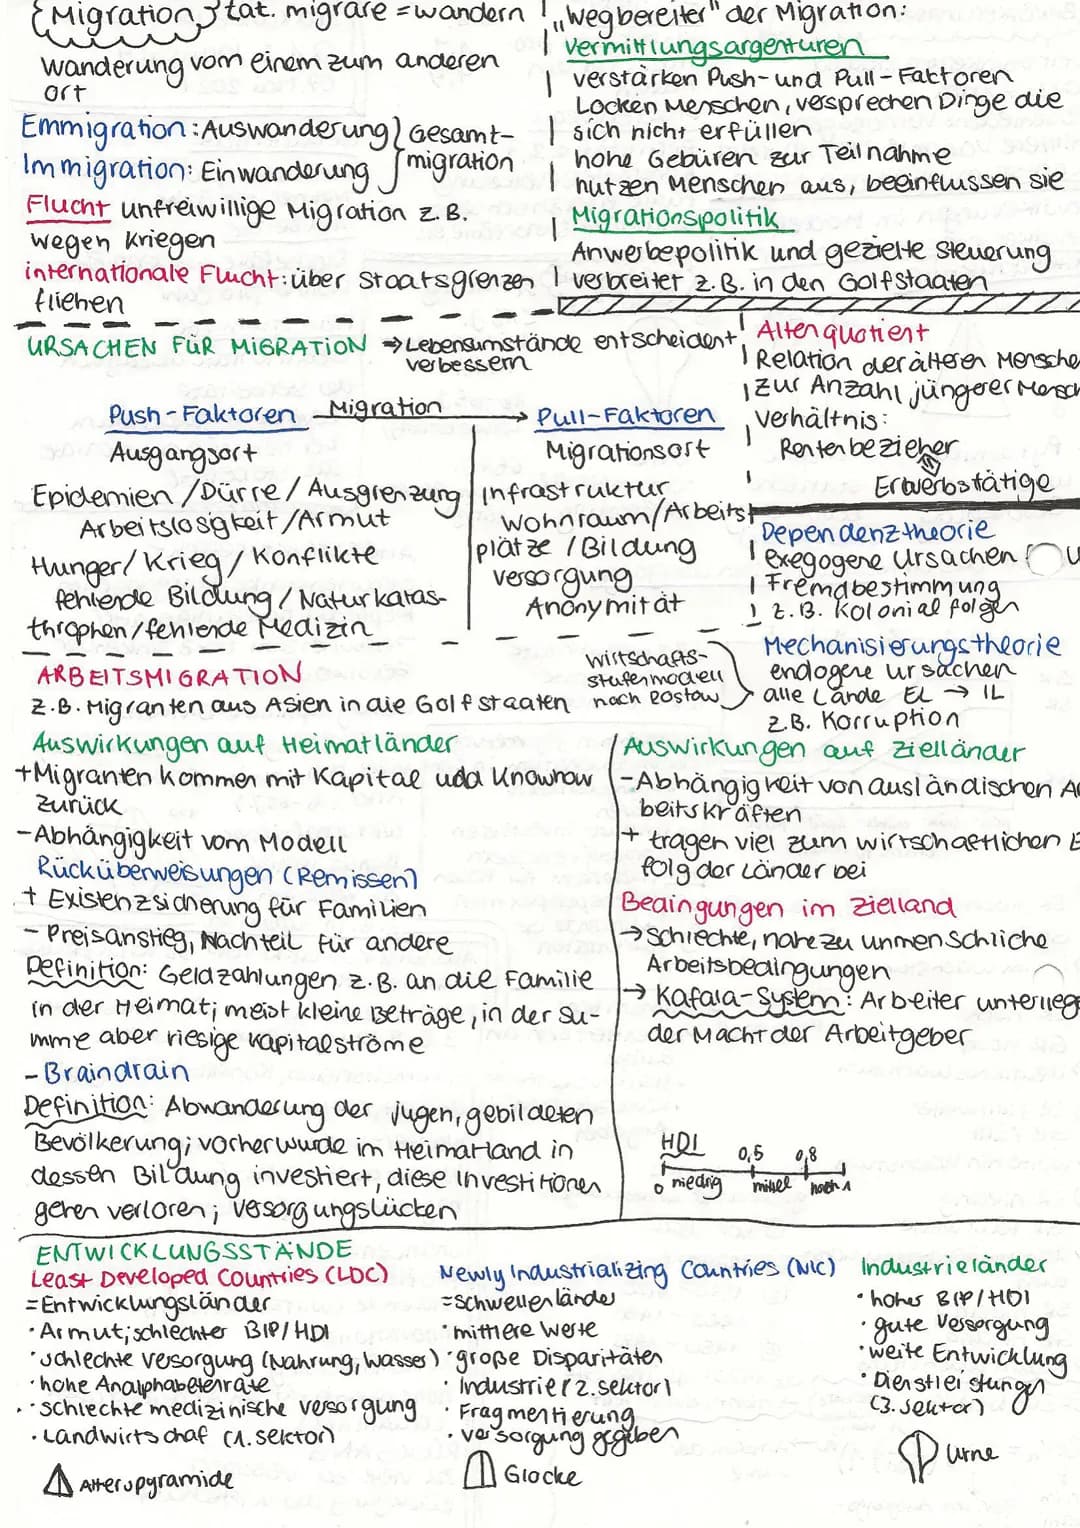 Migration, lat. migrare = wandern
wanderung vom einem zum anderen
ort
Emmigration: Auswanderung
Immigration: Einwanderung
Gesamt-
migration
Flucht unfreiwillige Migration z.B.
wegen Kriegen
internationale Flucht: über Staatsgrenzen
fliehen
"wegbereiter" der Migration:
Vermittlungsargenturen
verstärken Push- und Pull-Faktoren
Locken Menschen, versprechen Dinge die
sich nicht erfüllen
hohe Gebüren zur Teilnahme
nutzen Menschen aus, beeinflussen sie
Migrationspolitik
Anwerbepolitik und gezielte Steuerung
verbreitet z.B. in den Golfstaaten
URSACHEN FÜR MIGRATION → Lebensumstände entscheident,
verbessern
Push-Faktoren Migration → Pull-Faktoren
Ausgangsort
Epidemien / Dürre / Ausgrenzung
Arbeitslosigkeit / Armut
Hunger / Krieg / Konflikte
fehlende Bildung / Naturkatas-
throphen / fehlende Medizin
Migrationsort
Infrastruktur
wohnraum / Arbeits
plätze / Bildung
versorgung
Anonymität
Altenquotient
Relation der älteren Mensche
zur Anzahl jüngerer Mensch
Verhältnis:
Rentenbezieher
Erwerbstätige
Dependenztheorie
Exegogene Ursachen
Fremdbestimmung
z.B. Kolonialfolgen
Mechanisierungstheorie
endogene ursachen
alle Lände EL → IL
z.B. Korruption
Wirtschafts-
stufenmodell
nach Rostow
ARBEITSMIGRATION
z.B. Migranten aus Asien in die Golfstaaten
Auswirkungen auf Heimatländer
+ Migranten kommen mit Kapital udd Knownow
zurück
- Abhängigkeit vom Modell
Rücküberweisungen (Remissen)
+ Existenzsicherung für Familien
- Preisanstieg, Nachteil für andere
Definition: Geldzahlungen z.B. an die Familie
in der Heimat; meist kleine Beträge, in der Su-
mme aber riesige Kapitalströme
- Braindrain
Definition: Abwanderung der jugen, gebildeten
Bevölkerung; vorher wurde im Heimatland in
dessen Bildung investiert, diese Investitionen
gehen verloren; Versorgungslücken
Auswirkungen auf Zielländer
- Abhängigkeit von ausländischen Ar
beitskräften
+ tragen viel zum wirtschaftlichen E
folg der Länder bei
Bedingungen im Zielland
→ schlechte, nahezu unmenschliche
Arbeitsbedingungen
→ Kafala-System: Arbeiter unterlieg
der Macht der Arbeitgeber
HDI
0,5 0,8
0 niedrig mittel hoch 1
ENTWICKLUNGSSTÄNDE
Least Developed Countries (LDC)
= Entwicklungsländer
· Armut; schlechter BIP/HDI
· schlechte versorgung (Nahrung, Wasser)
· hohe Analphabetenrate
· schlechte medizinische versorgung
· Landwirtschaf (1. Sektor)
Alterspyramide
Newly Industrializing Countries (NIC)
= Schwellenländer
· mittlere Werte
· große Disparitäten
· Industrie (2. Sektor)
· Fragmentierung
· versorgung gegeben
Glocke
Industrieländer
· hoher BIP/HDI
· gute Versorgung
· weite Entwicklung
· Dienstleistungen
(3. Sektor)
Urne